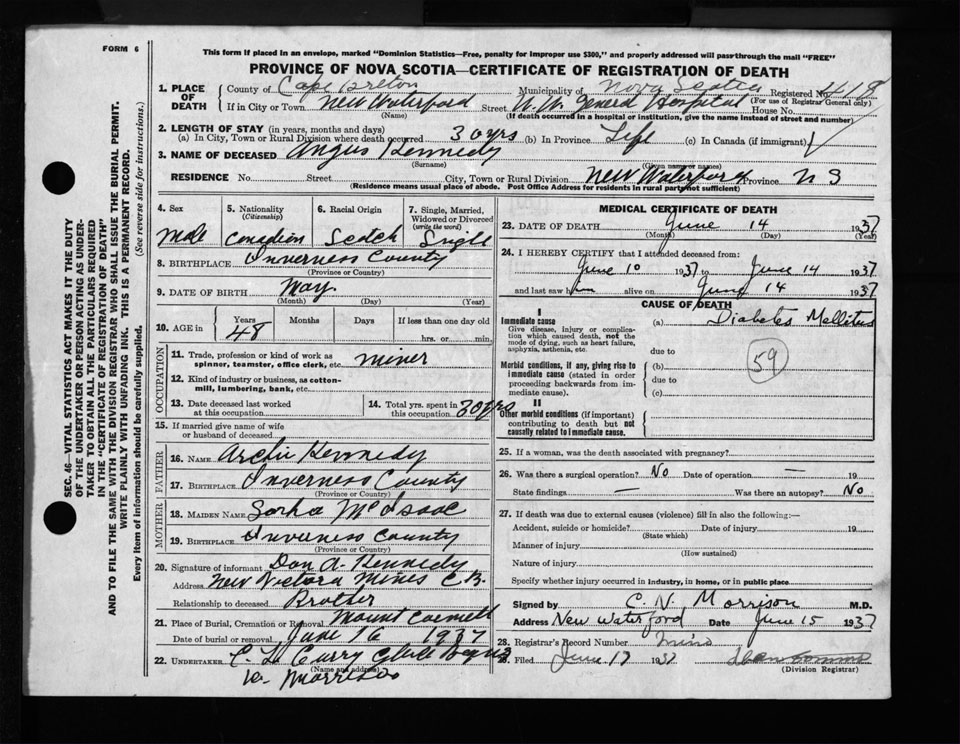 FORM 6
This form if placed in an envelope, marked "Dominion Statistics—Free, penalty for improper use $300," and properly addressed will pass through the mail "FREE"
PROVINCE OF NOVA SCOTIA—CERTIFICATE OF REGISTRATION OF DEATH
SEC. 46—VITAL STATISTICS ACT MAKES IT THE DUTY
OF THE UNDERTAKER OR PERSON ACTING AS UNDER-
TAKER TO OBTAIN ALL THE PARTICULARS REQUIRED
IN THE "CERTIFICATE OF REGISTRATION OF DEATH"
AND TO FILE THE SAME WITH THE DIVISION REGISTRAR WHO SHALL ISSUE THE BURIAL PERMIT.
WRITE PLAINLY WITH UNFADING INK. THIS IS A PERMANENT RECORD.
Every item of information should be carefully supplied. (See reverse side for instructions.)
1. PLACE OF DEATH
County of Cape Breton Municipality of Nova Scotia Registered No.
(For use of Registrar General only)
If in City or Town New Waterford Street N.W. General Hospital House No.
(Name) (If death occurred in a hospital or institution, give the name instead of street and number)
2. LENGTH OF STAY (in years, months and days)
(a) In City, Town or Rural Division where death occurred 30 yrs (b) In Province Life (c) In Canada (if immigrant)
3. NAME OF DECEASED Angus Kennedy
(Surname) (Given name or names)
RESIDENCE No. Street City, Town or Rural Division New Waterford Province N S
(Residence means usual place of abode. Post Office Address for residents in rural parts not sufficient)
4. Sex
Male
5. Nationality
(Citizenship)
Canadian
6. Racial Origin
Scotch
7. Single, Married,
Widowed or Divorced
(write the word)
Single
8. BIRTHPLACE Inverness County
(Province or Country)
9. DATE OF BIRTH May
(Month) (Day) (Year)
10. AGE in Years Months Days If less than one day old
48 hrs. or min.
OCCUPATION
11. Trade, profession or kind of work as
spinner, teamster, office clerk, etc. miner
12. Kind of industry or business, as cotton-
mill, lumbering, bank, etc.
13. Date deceased last worked
at this occupation
14. Total yrs. spent in
this occupation 30 yrs
15. If married give name of wife
or husband of deceased
FATHER
16. NAME Archie Kennedy
17. BIRTHPLACE Inverness County
(Province or Country)
MOTHER
18. MAIDEN NAME Sarha McIsaac
19. BIRTHPLACE Inverness County
(Province or Country)
20. Signature of informant Don A. Kennedy
Address New Victoria Mines C.B.
Relationship to deceased Brother
21. Place of Burial, Cremation or Removal Mount Carmell
Date of burial or removal June 16 1937
22. UNDERTAKER C. L. Curry
(Name and address)
MEDICAL CERTIFICATE OF DEATH
23. DATE OF DEATH June 14 1937
(Month) (Day) (Year)
24. I HEREBY CERTIFY that I attended deceased from:
June 10 1937 to June 14 1937
and last saw him alive on June 14 1937
CAUSE OF DEATH
I
Immediate cause
Give disease, injury or complica-
tion which caused death, not the
mode of dying, such as heart failure,
asphyxia, asthenia, etc.
(a) Diabetes Mellitus
due to
Morbid conditions, if any, giving rise to
immediate cause (stated in order
proceeding backwards from im-
mediate cause).
(b)
due to
(c)
59
II
Other morbid conditions (if important)
contributing to death but not
causally related to immediate cause.
25. If a woman, was the death associated with pregnancy?
26. Was there a surgical operation? No Date of operation — 19
State findings — Was there an autopsy? No
27. If death was due to external causes (violence) fill in also the following:—
Accident, suicide or homicide? Date of injury 19
(State which)
Manner of injury
(How sustained)
Nature of injury
Specify whether injury occurred in industry, in home, or in public place
Signed by C. N. Morrison M.D.
Address New Waterford Date June 15 1937
28. Registrar's Record Number
29. Filed June 17 1937
(Division Registrar)